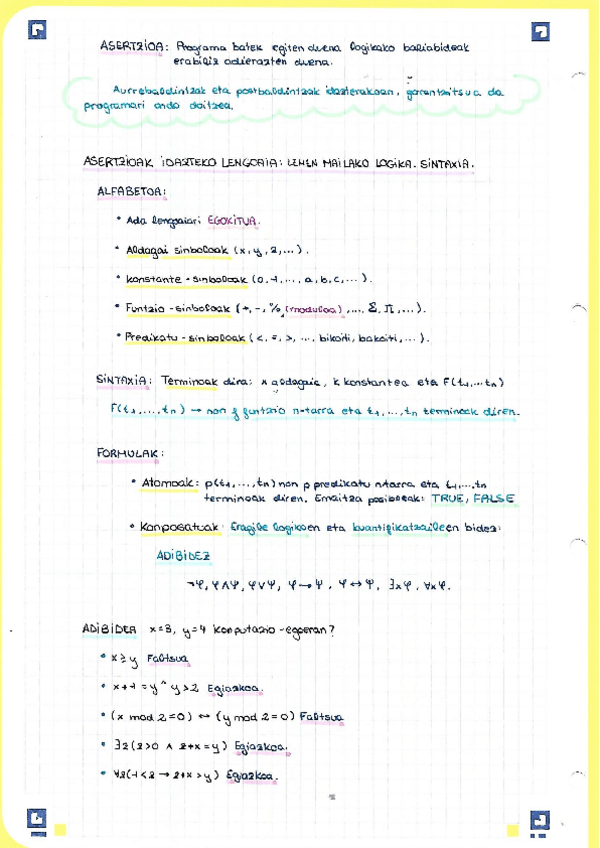 ASERTZIOA: Programa batek egiten duena logikako baliabideak
erabiliz adierazten duena.
Aurrebaldintzak eta postbaldintzak idazterakoan, garrantzitsua da
programari ondo doitzea.
ASERTZIOAK IDAZTEKO LENGOAIA: LEHEN MAILAKO LOGIKA. SINTAXIA.
ALFABETOA:
• Ada lengoaiari EGOKITUA.
• Aldagai sinboloak (x, y, z, ...).
• Konstante-sinboloak (0, 1, ..., a, b, c, ...).
• Funtzio-sinboloak (+, -, %, (moduloa), ..., Σ, Π, ...).
• Predikatu-sinboloak (<, =, >, ..., bikoiti, bakoiti, ...).
SINTAXIA: Terminoak dira: x aldagaia, k konstantea eta F(t₁, ... tₙ)
F(t₁, ..., tₙ) → non f funtzio n-tarra eta t₁, ..., tₙ terminoak diren.
FORMULAK:
• Atomoak: p(t₁, ..., tn) non p predikatu n-tarra eta t₁, ..., tn
terminoak diren. Emaitza posibleak: TRUE, FALSE
• Konposatuak: Eragile logikoen eta kuantifikatzaileen bidez:
ADIBIDEZ
¬φ, φ∧ψ, φ∨ψ, φ→ψ, φ↔ψ, ∃xφ, ∀xφ.
ADIBIDEA x=3, y=4 konputazio-egoeran?
• x≥y Faltsua
• x+1=y ^ y>2 Egiazkoa.
• (x mod 2=0) ↔ (y mod 2=0) Faltsua
• ∃z(z>0 ∧ z+x=y) Egiazkoa.
• ∀z(1<z → z+x>y) Egiazkoa.